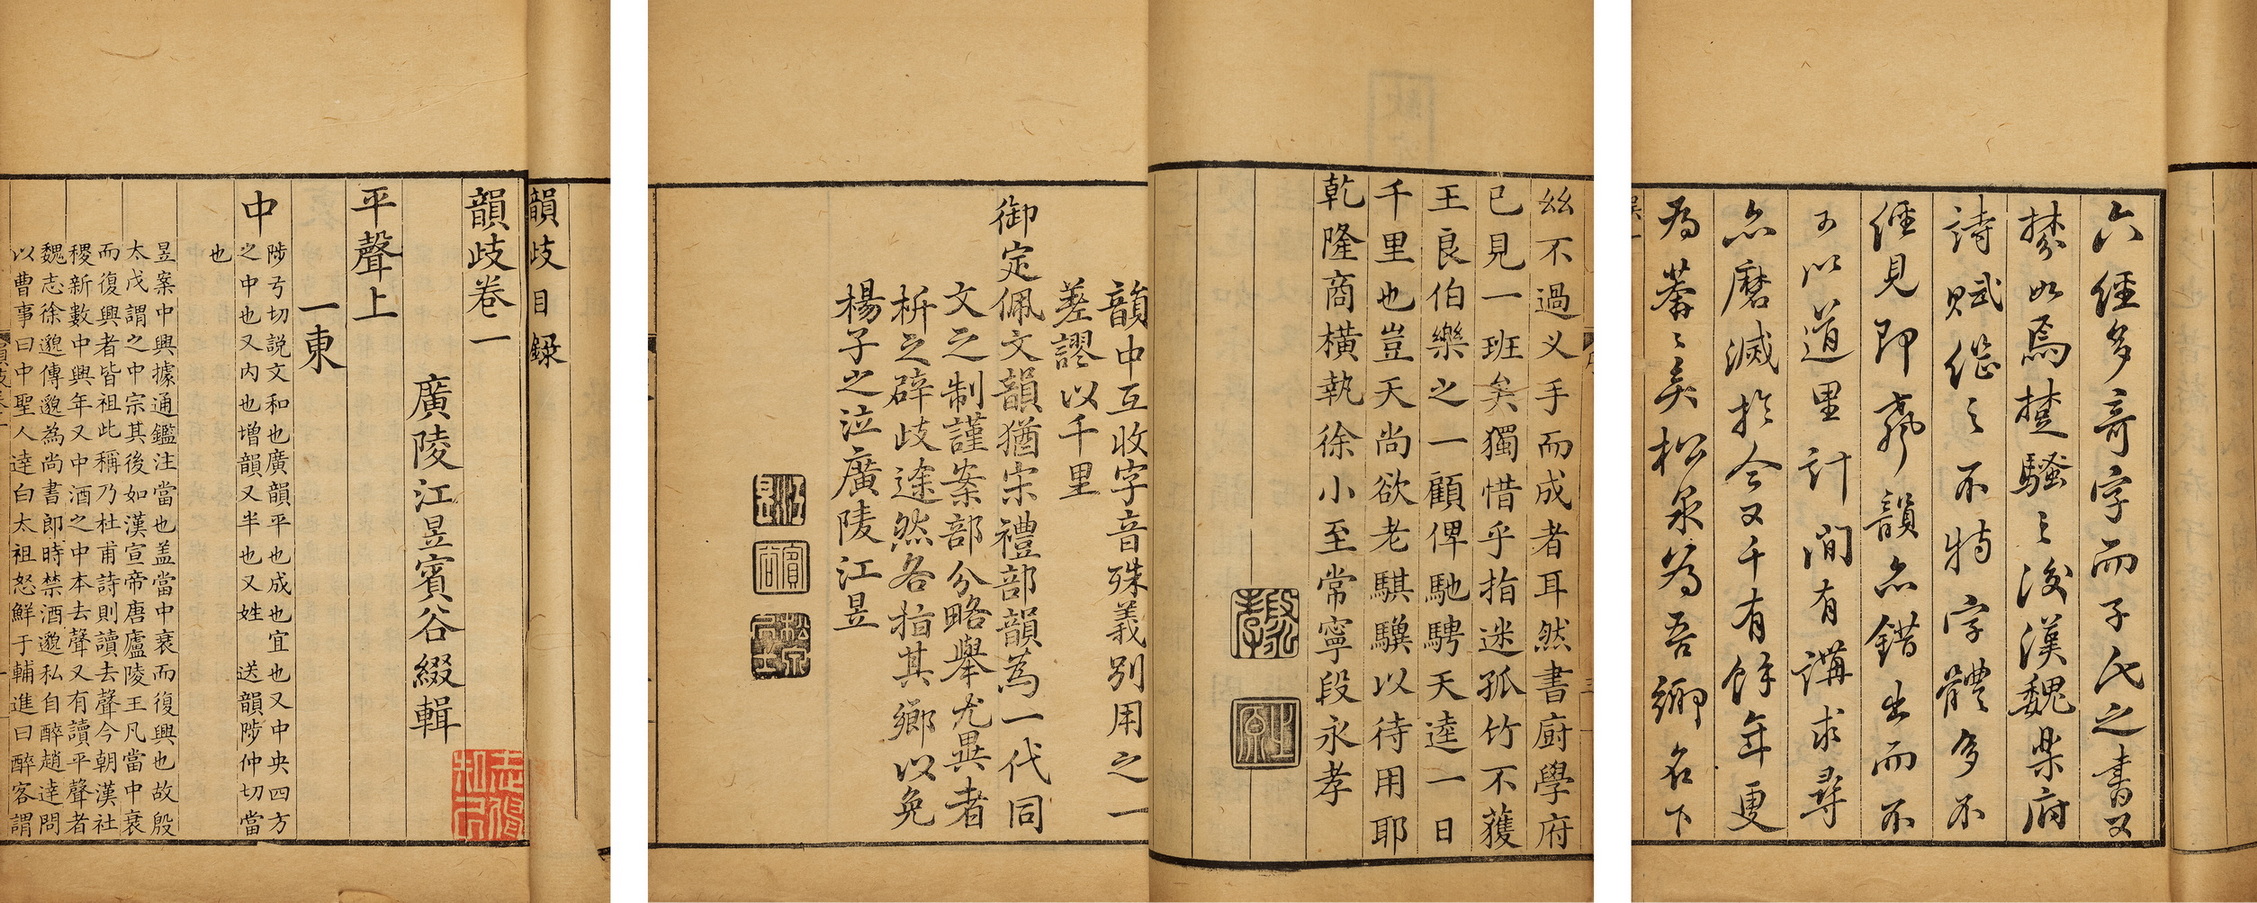 六經多奇字而子氏之書又
棼如焉楚騷之後漢魏樂府
詩賦繼之不特字體多不
經見即聲韻亦錯出而不
可以道里計間有講求尋
亦磨滅於今又千有餘年更
為夢夢矣松泉為吾鄉名下
玆不過义手而成者耳然書廚學府
已見一班矣獨惜乎指迷孤竹不獲
王良伯樂之一顧俾馳騁天逵一日
千里也豈天尚欲老騏驥以待用耶
乾隆商橫執徐小至常寧段永孝
韻中互收字音殊義別用之一
差謬以千里
御定佩文韻猶宋禮部韻為一代同
文之制謹案部分略舉尤異者
枡之辟歧途然各指其鄉以免
楊子之泣廣陵江昱
江昱
賓谷
韻歧目録
韻歧卷一
廣陵江昱賓谷綴輯
平聲上
一東
中
陟弓切説文和也廣韻平也成也宜也又中央四方
之中也又内也增韻又半也又姓 送韻陟仲切當
也
昱案中興據通鑑注當也盖當中衰而復興也故殷
太戊謂之中宗其後如漢宣帝唐廬陵王凡當中衰
而復興者皆祖此稱乃杜甫詩則讀去聲今朝漢社
稷新數中興年又中酒之中本去聲又有讀平聲者
魏志徐邈傳邈為尚書郎時禁酒邈私自醉趙達問
以曹事曰中聖人逹白太祖怒鮮于輔進曰醉客謂